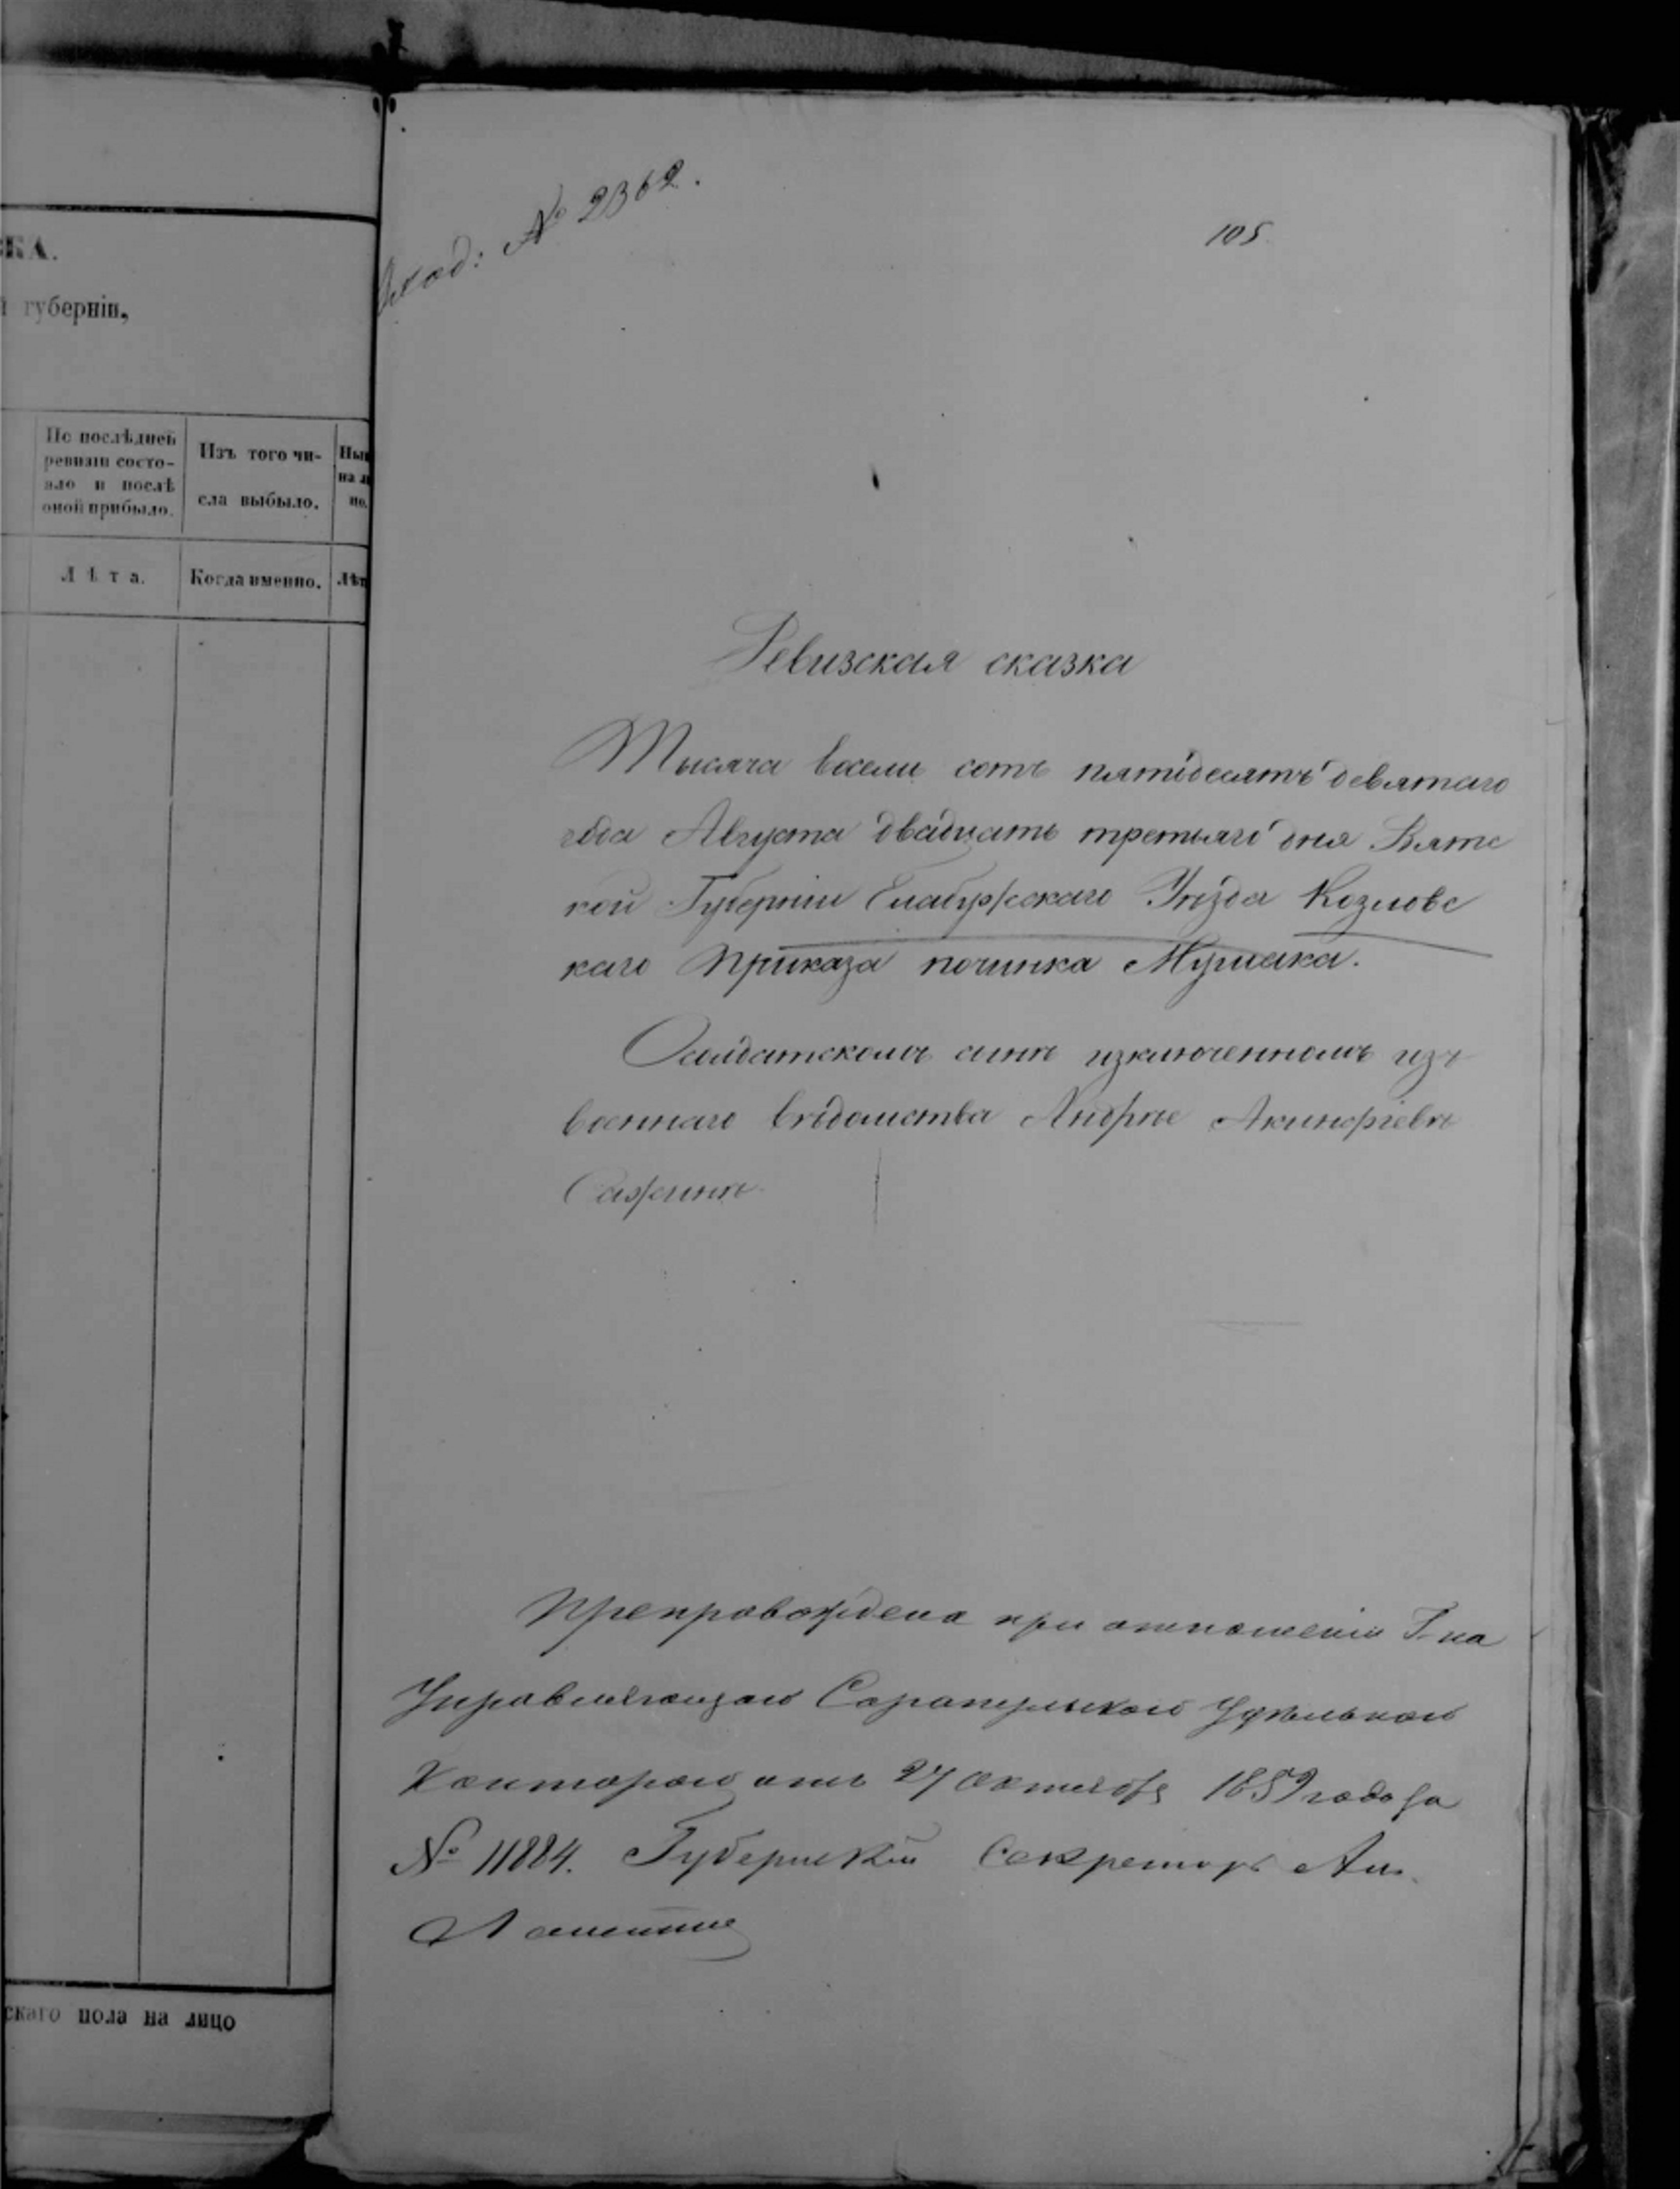 КА.
губерніи,
По послѣдней
ревизіи состо-
яло и послѣ
оной прибыло.
Изъ того чи-
сла выбыло.
Лѣта.
Когда именно.
скаго пола на лицо
Вход: № 2362.
105
Ревизская сказка
Тысяча восемь сотъ пятьдесятъ девятаго
года Августа двадцать третьяго дня Вятс
кой Губерніи Елабужскаго Уѣзда Козловс
каго Приказа починка
О солдатскомъ сынѣ изключенномъ изъ
военнаго вѣдомства Андрѣе Акинфіевѣ
Сажинѣ
Препровождена при отношеніи Г-на
Управляющаго Сарапульскою Удѣльною
Конторою отъ 27 Октября 1859 года за
№ 11884. Губернскій Секретарь